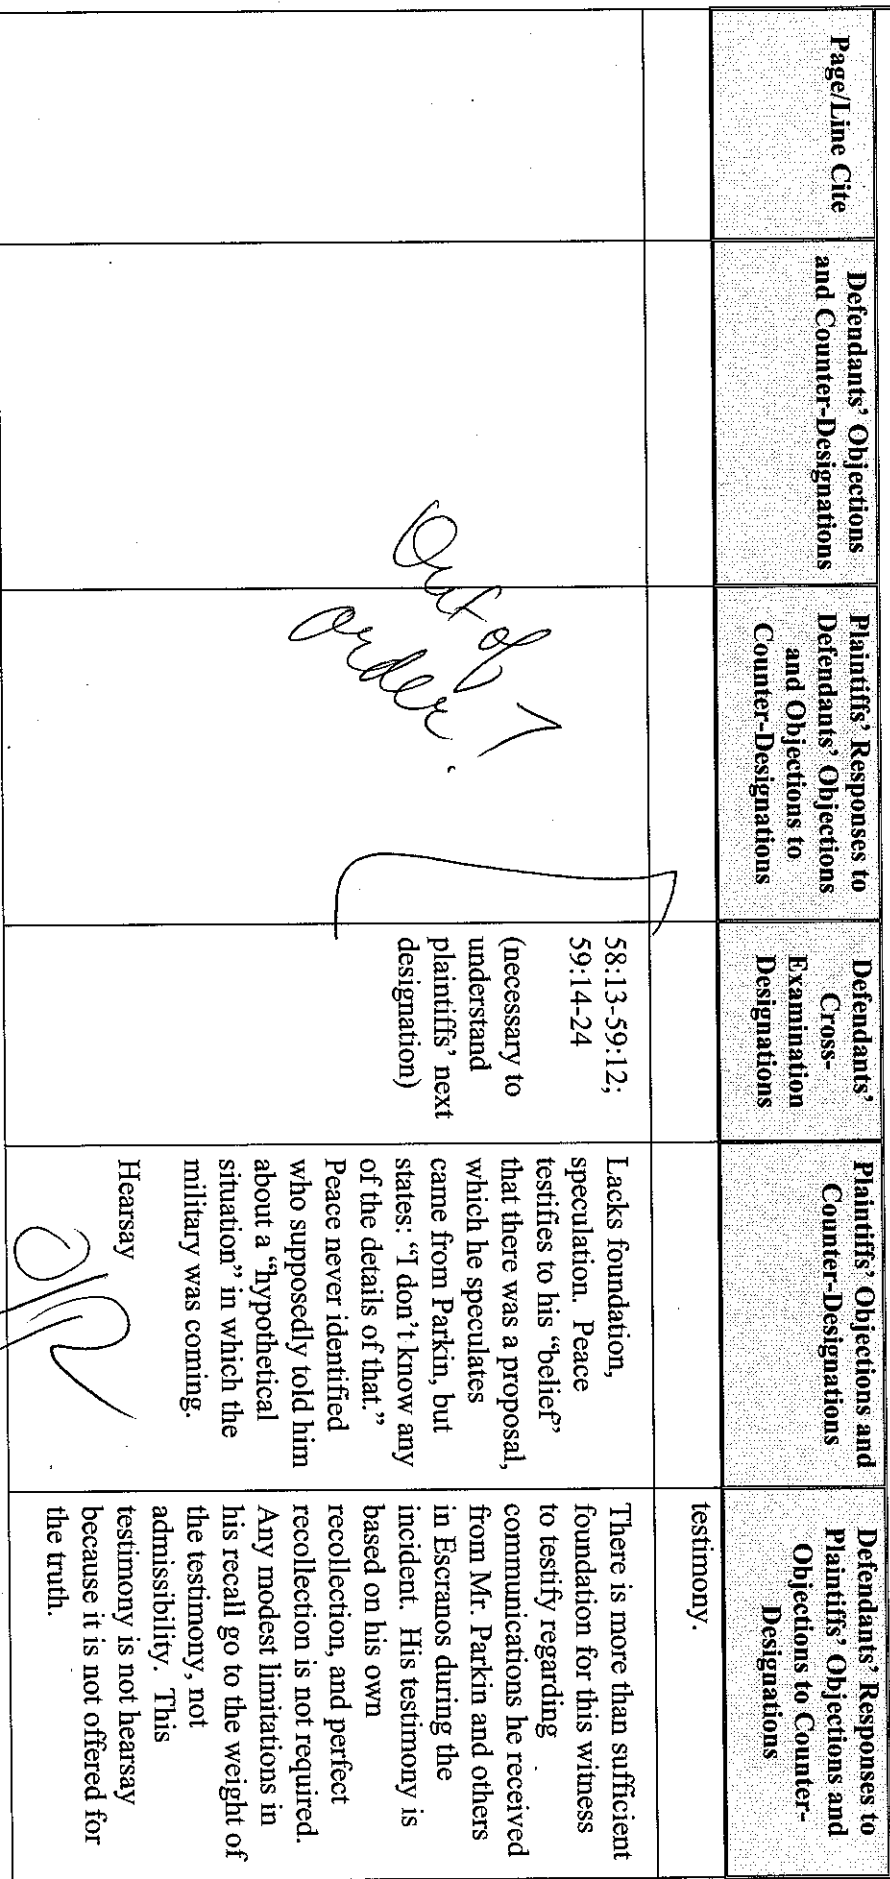 Page/Line Cite
Defendants' Objections
and Counter-Designations
Plaintiffs' Responses to
Defendants' Objections
and Objections to
Counter-Designations
Defendants'
Cross-
Examination
Designations
Plaintiffs' Objections and
Counter-Designations
Defendants' Responses to
Plaintiffs' Objections and
Objections to Counter-
Designations
testimony.
Out of
order?
58:13-59:12;
59:14-24
(necessary to
understand
plaintiffs' next
designation)
Lacks foundation,
speculation. Peace
testifies to his “belief”
that there was a proposal,
which he speculates
came from Parkin, but
states: “I don't know any
of the details of that.”
Peace never identified
who supposedly told him
about a “hypothetical
situation” in which the
military was coming.
Hearsay
There is more than sufficient
foundation for this witness
to testify regarding
communications he received
from Mr. Parkin and others
in Escranos during the
incident. His testimony is
based on his own
recollection, and perfect
recollection is not required.
Any modest limitations in
his recall go to the weight of
the testimony, not
admissibility. This
testimony is not hearsay
because it is not offered for
the truth.